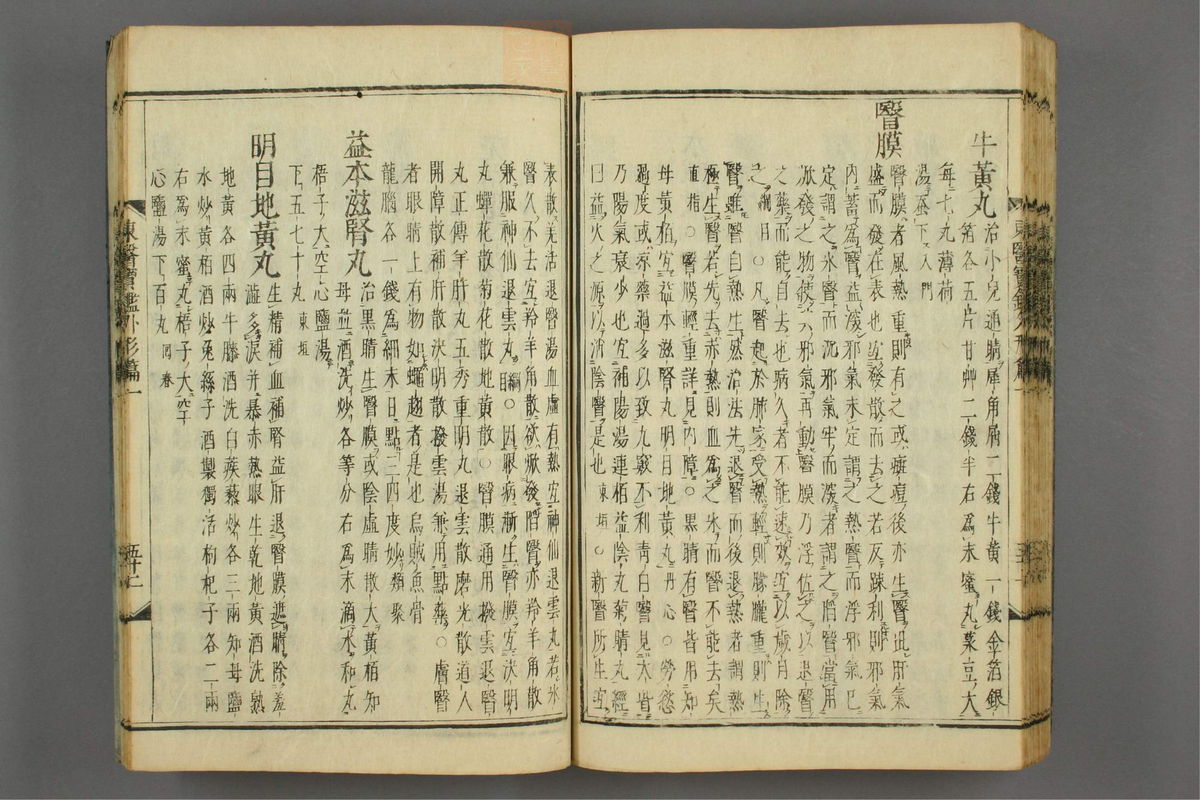 牛黃丸治小兒通睛犀角屑二錢牛黃一錢金箔銀
箔各五片甘艸二錢半右爲末蜜丸菉豆大
每七丸薄荷
湯呑下入門
瞖膜
瞖膜者風熱重則有之或癍痘後亦生瞖此肝氣
盛而發在表也宜發散而去之若反踈利則邪氣
內蓄爲瞖益深邪氣未定謂之熱瞖而浮邪氣已
定謂之氷瞖而沉邪氣牢而深者謂之陷瞖當用
焮發之物使其邪氣再動瞖膜乃浮佐之以退瞖
之藥而能自去也病久者不能速效宜以歲月除
之綱目○凡瞖起於肺家受熱輕則朦朧重則生
瞖雖瞖自熱生然治法先退瞖而後退熱者謂熱
極生瞖若先去赤熱則血爲之氷而瞖不能去矣
直指○瞖膜輕重詳見內障○黑睛有瞖皆用知
母黃栢宜益本滋腎丸明目地黃丸丹心○勞慾
過度或凉藥過多以致九竅不利靑白瞖見大眥
乃陽氣衰少也宜補陽湯連栢益陰丸菊睛丸經
曰益火之源以消陰瞖是也東垣○新瞖所生宜
表散羌活退瞖湯血虛有熱宜神仙退雲丸若氷
瞖久不去宜羚羊角散欲焮發陷瞖亦羚羊角散
兼服神仙退雲丸綱目○因眼病漸生瞖膜宜決明
丸蟬花散菊花散地黃散○瞖膜通用撥雲退瞖
丸正傳羊肝丸五秀重明丸退雲散磨光散道人
開障散補肝散決明散撥雲湯兼用點藥○膚瞖
者眼睛上有物如蠅翅者是也烏賊魚骨
龍腦各一錢爲細末日點三四度妙類聚
益本滋腎丸治黑睛生瞖膜或陰虛睛散大黃栢知
母並酒洗炒各等分右爲末滴水和丸
梧子大空心鹽湯
下五七十丸東垣
明目地黃丸生精補血補腎益肝退瞖膜遮睛除羞
澁多淚并暴赤熱眼生乾地黃酒洗熟
地黃各四兩牛膝酒洗白蒺藜炒各三兩知母鹽
水炒黃栢酒炒兔絲子酒製獨活枸杞子各二兩
右爲末蜜丸梧子大空
心鹽湯下百丸回春
東醫寶鑑外形篇一
五十二